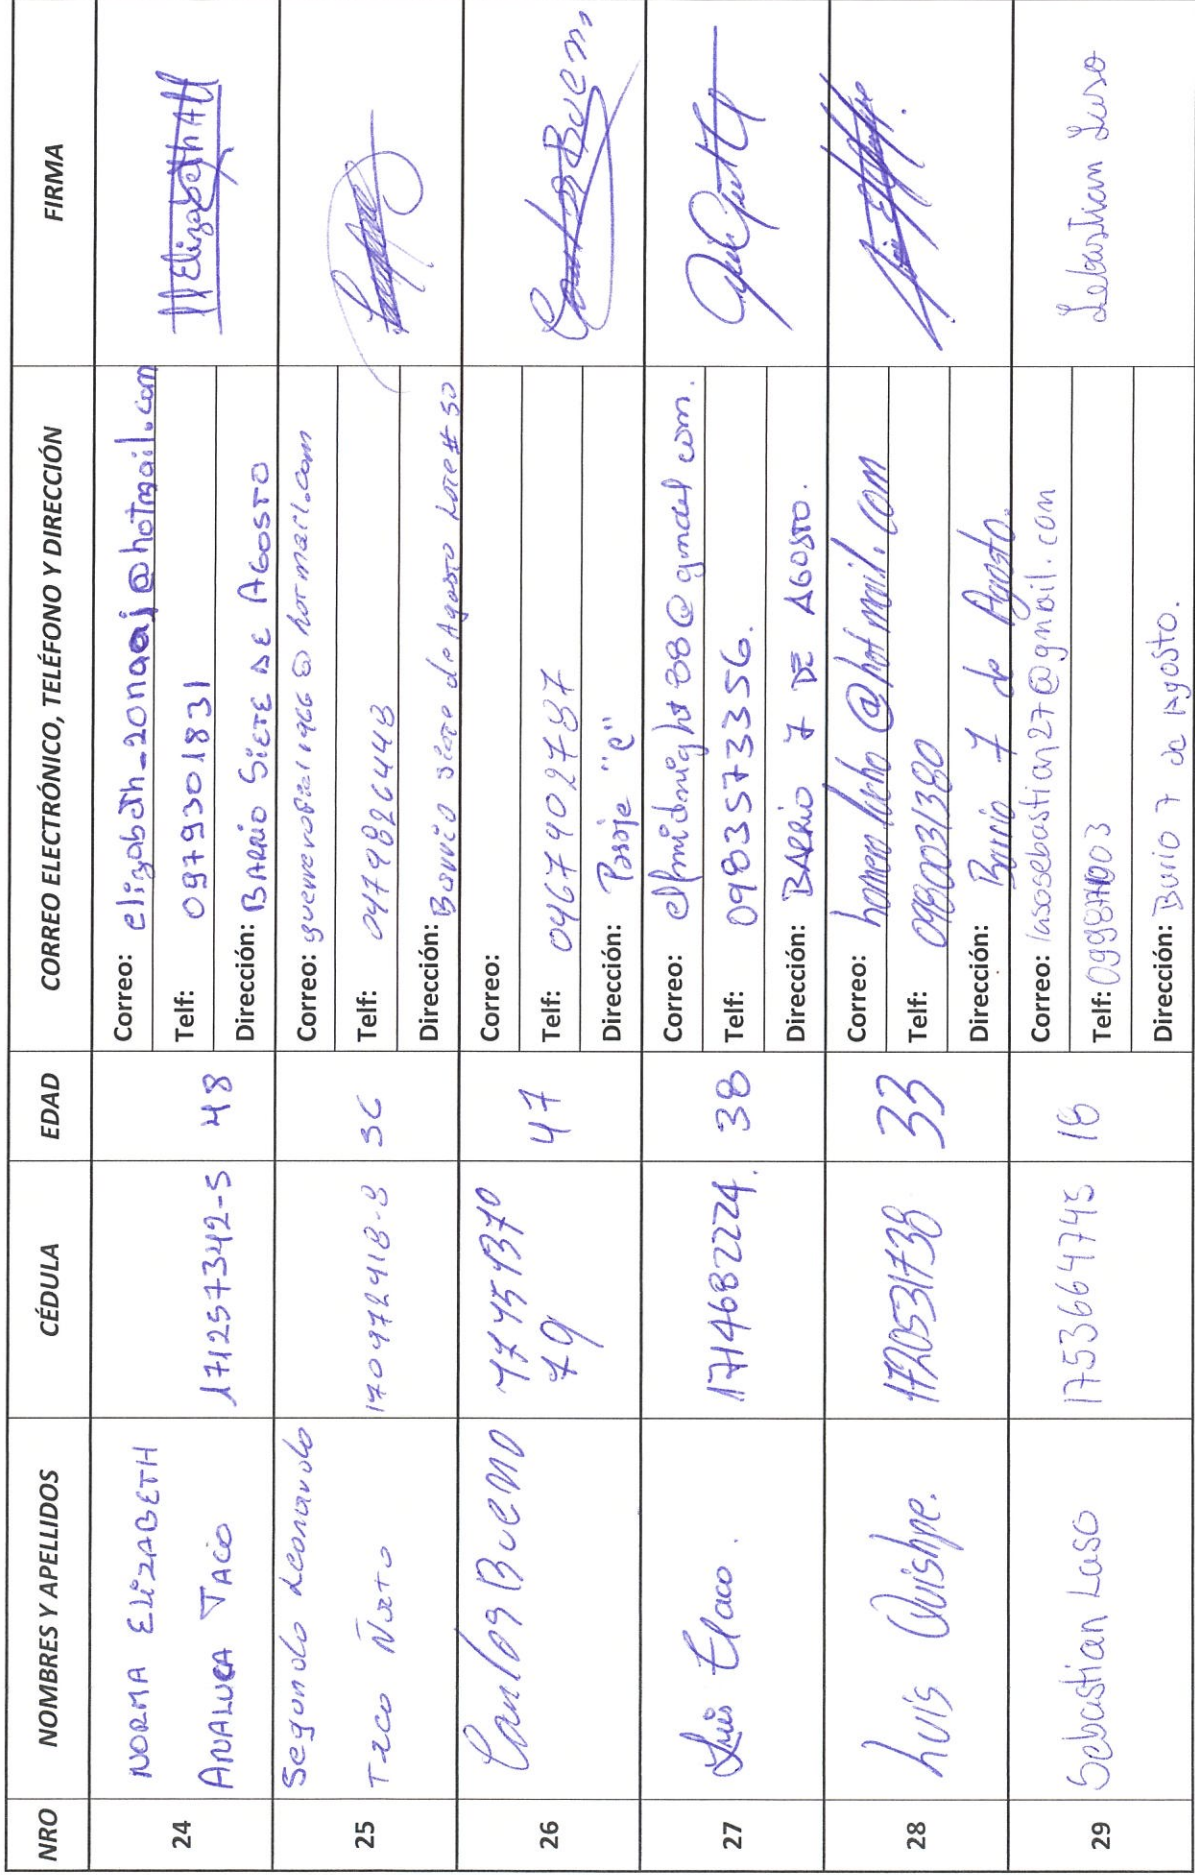 NRO NOMBRES Y APELLIDOS CÉDULA EDAD CORREO ELECTRÓNICO, TELÉFONO Y DIRECCIÓN FIRMA
24
NORMA ELIZABETH
ANALUCA TACO
171257342-5
48
Correo: elizabeth_20naaj@hotmail.com
Telf: 0979301831
Dirección: BARRIO SIETE DE AGOSTO
Elizabeth
25
Segundo Leonardo
Taco Ñato
170972418-8
Correo: @hotmail.com
Telf:
Dirección: Barrio siete de Agosto Lote # 50
26
Carlos Bueno
47
Correo:
Telf: 0467402787
Dirección: Pasaje "e"
Carlos Bueno
27
Luis
1714682224.
38
Correo: elmidnight88@gmail com.
Telf: 0983573356.
Dirección: BARRIO 7 DE AGOSTO.
28
Luis Quishpe.
1720531738
33
Correo: homerolucho@hotmail.com
Telf: 0980031380
Dirección: Barrio 7 de Agosto.
29
Sebastian Laso
1753664745
18
Correo: lasosebastian27@gmail.com
Telf:
Dirección: Barrio 7 de Agosto.
Sebastian Laso